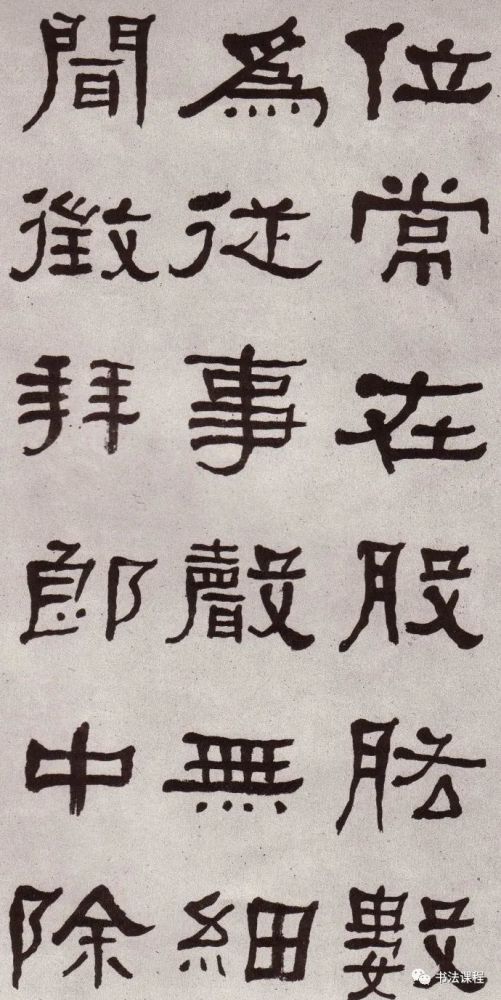 位常在股肱數
爲從事聲無細
聞徵拜郎中除
书法课程